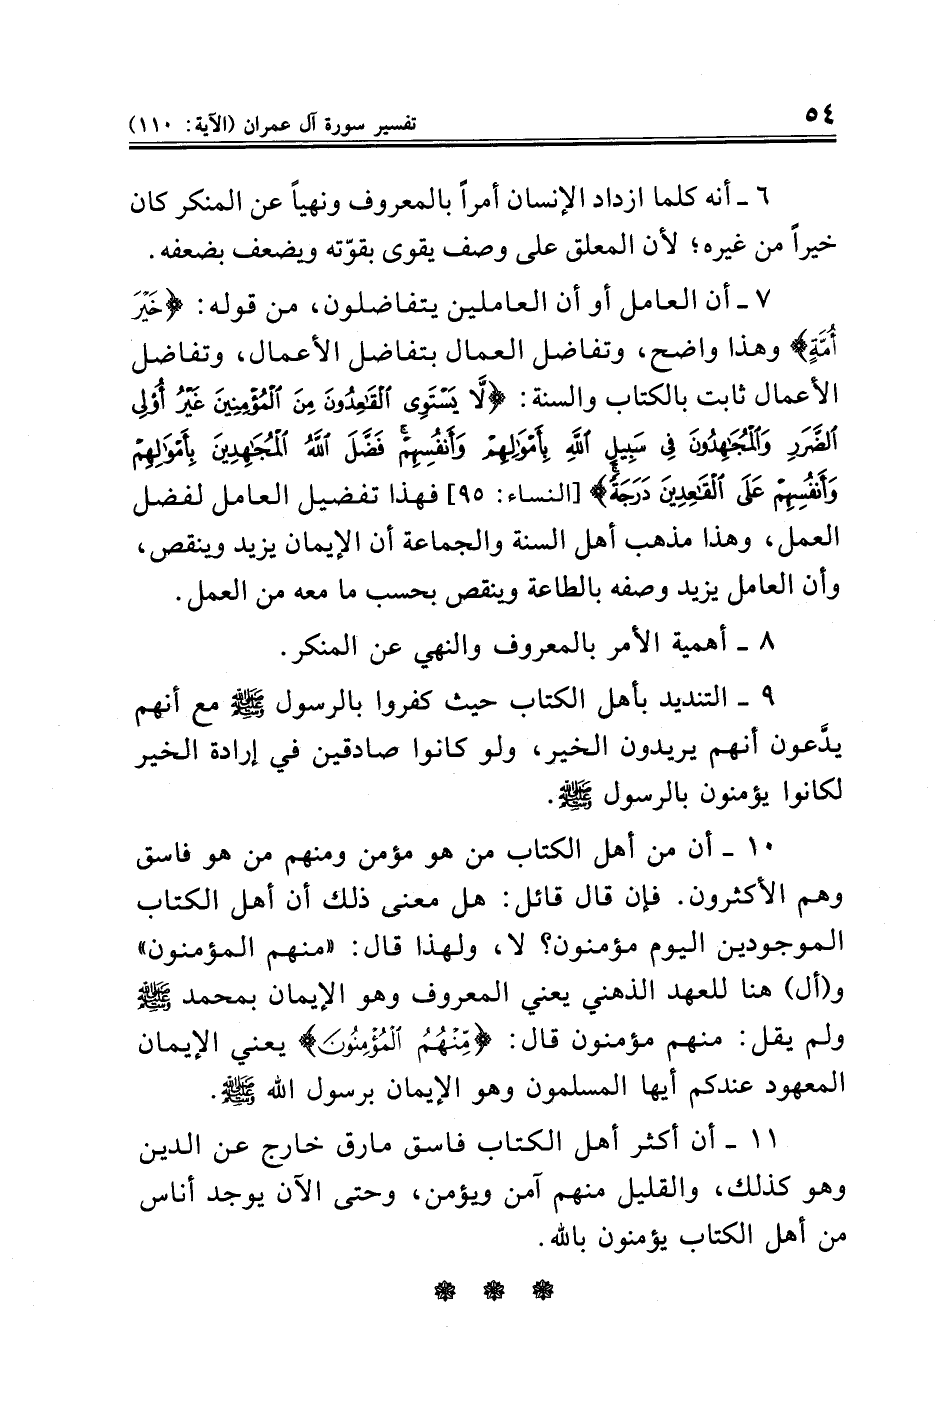 ٥٤
تفسير سورة آل عمران (الآية: ١١٠)
٦ ـ أنه كلما ازداد الإنسان أمراً بالمعروف ونهياً عن المنكر كان
خيراً من غيره؛ لأن المعلق على وصف يقوى بقوّته ويضعف بضعفه.
٧ ـ أن العامل أو أن العاملين يتفاضلون، من قوله: ﴿خَيْرَ
أُمَّةٍ﴾ وهذا واضح، وتفاضل العمال بتفاضل الأعمال، وتفاضل
الأعمال ثابت بالكتاب والسنة: ﴿لَّا يَسْتَوِى ٱلْقَٰعِدُونَ مِنَ ٱلْمُؤْمِنِينَ غَيْرُ أُو۟لِى
ٱلضَّرَرِ وَٱلْمُجَٰهِدُونَ فِى سَبِيلِ ٱللَّهِ بِأَمْوَٰلِهِمْ وَأَنفُسِهِمْ ۚ فَضَّلَ ٱللَّهُ ٱلْمُجَٰهِدِينَ بِأَمْوَٰلِهِمْ
وَأَنفُسِهِمْ عَلَى ٱلْقَٰعِدِينَ دَرَجَةً ۚ﴾ [النساء: ٩٥] فهذا تفضيل العامل لفضل
العمل، وهذا مذهب أهل السنة والجماعة أن الإيمان يزيد وينقص،
وأن العامل يزيد وصفه بالطاعة وينقص بحسب ما معه من العمل.
٨ ـ أهمية الأمر بالمعروف والنهي عن المنكر.
٩ ـ التنديد بأهل الكتاب حيث كفروا بالرسول ﷺ مع أنهم
يدَّعون أنهم يريدون الخير، ولو كانوا صادقين في إرادة الخير
لكانوا يؤمنون بالرسول ﷺ.
١٠ ـ أن من أهل الكتاب من هو مؤمن ومنهم من هو فاسق
وهم الأكثرون. فإن قال قائل: هل معنى ذلك أن أهل الكتاب
الموجودين اليوم مؤمنون؟ لا، ولهذا قال: «منهم المؤمنون»
و(أل) هنا للعهد الذهني يعني المعروف وهو الإيمان بمحمد ﷺ
ولم يقل: منهم مؤمنون قال: ﴿مِّنْهُمُ ٱلْمُؤْمِنُونَ﴾ يعني الإيمان
المعهود عندكم أيها المسلمون وهو الإيمان برسول الله ﷺ.
١١ ـ أن أكثر أهل الكتاب فاسق مارق خارج عن الدين
وهو كذلك، والقليل منهم آمن ويؤمن، وحتى الآن يوجد أناس
من أهل الكتاب يؤمنون بالله.